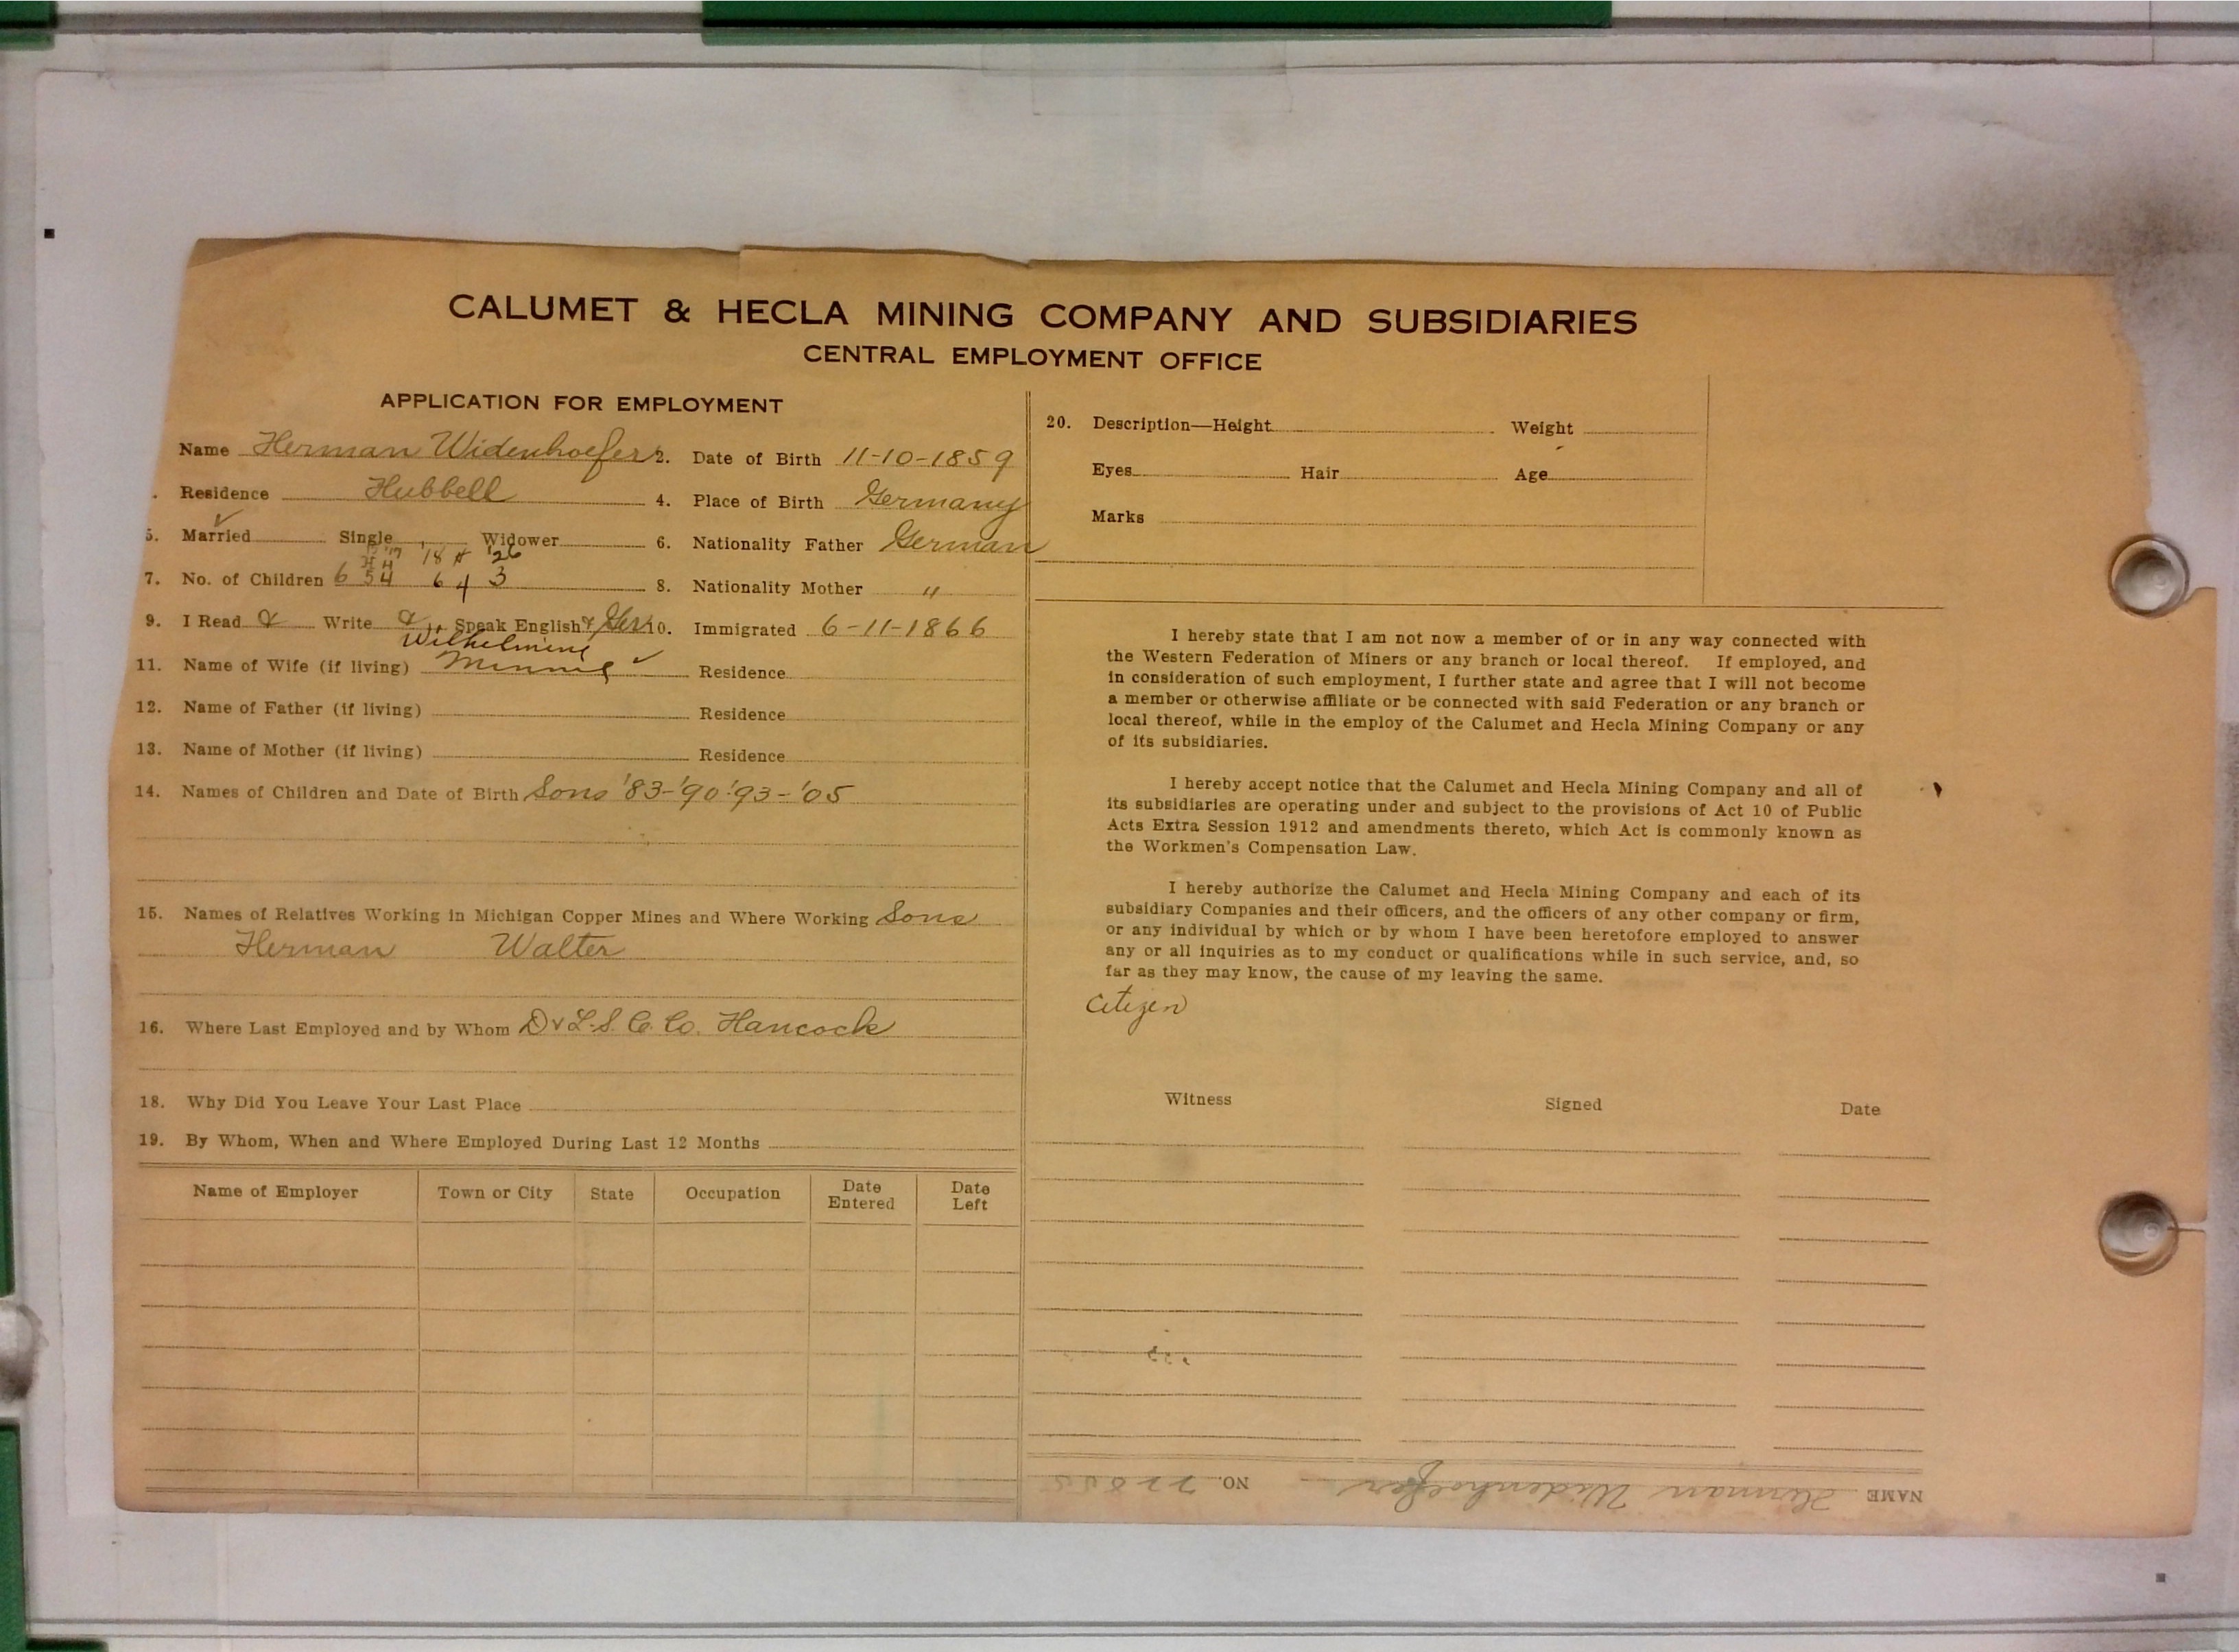 CALUMET & HECLA MINING COMPANY AND SUBSIDIARIES
CENTRAL EMPLOYMENT OFFICE
APPLICATION FOR EMPLOYMENT
Name Herman Widenhoefer 2. Date of Birth 11-10-1859
. Residence Hubbell 4. Place of Birth Germany
5. Married ✓ Single Widower 6. Nationality Father German
'17 '18 '26
7. No. of Children 6 5 4 6 4 3 8. Nationality Mother "
9. I Read & Write & Speak English & Ger 10. Immigrated 6-11-1866
Wilhelmine
11. Name of Wife (if living) Minnie ✓ Residence
12. Name of Father (if living) Residence
13. Name of Mother (if living) Residence
14. Names of Children and Date of Birth Sons '83-'90-'93-'05
15. Names of Relatives Working in Michigan Copper Mines and Where Working Sons
Herman Walter
16. Where Last Employed and by Whom D & L.S. C. Co. Hancock
18. Why Did You Leave Your Last Place
19. By Whom, When and Where Employed During Last 12 Months
Name of Employer Town or City State Occupation Date Entered Date Left
20. Description—Height Weight
Eyes Hair Age
Marks
I hereby state that I am not now a member of or in any way connected with
the Western Federation of Miners or any branch or local thereof. If employed, and
in consideration of such employment, I further state and agree that I will not become
a member or otherwise affiliate or be connected with said Federation or any branch or
local thereof, while in the employ of the Calumet and Hecla Mining Company or any
of its subsidiaries.
I hereby accept notice that the Calumet and Hecla Mining Company and all of
its subsidiaries are operating under and subject to the provisions of Act 10 of Public
Acts Extra Session 1912 and amendments thereto, which Act is commonly known as
the Workmen's Compensation Law.
I hereby authorize the Calumet and Hecla Mining Company and each of its
subsidiary Companies and their officers, and the officers of any other company or firm,
or any individual by which or by whom I have been heretofore employed to answer
any or all inquiries as to my conduct or qualifications while in such service, and, so
far as they may know, the cause of my leaving the same.
Citizen
Witness Signed Date
NAME Herman Widenhoefer NO.